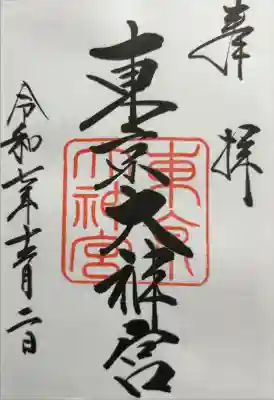 奉拝
東京大神宮
東京大神宮
令和七年十一月二日